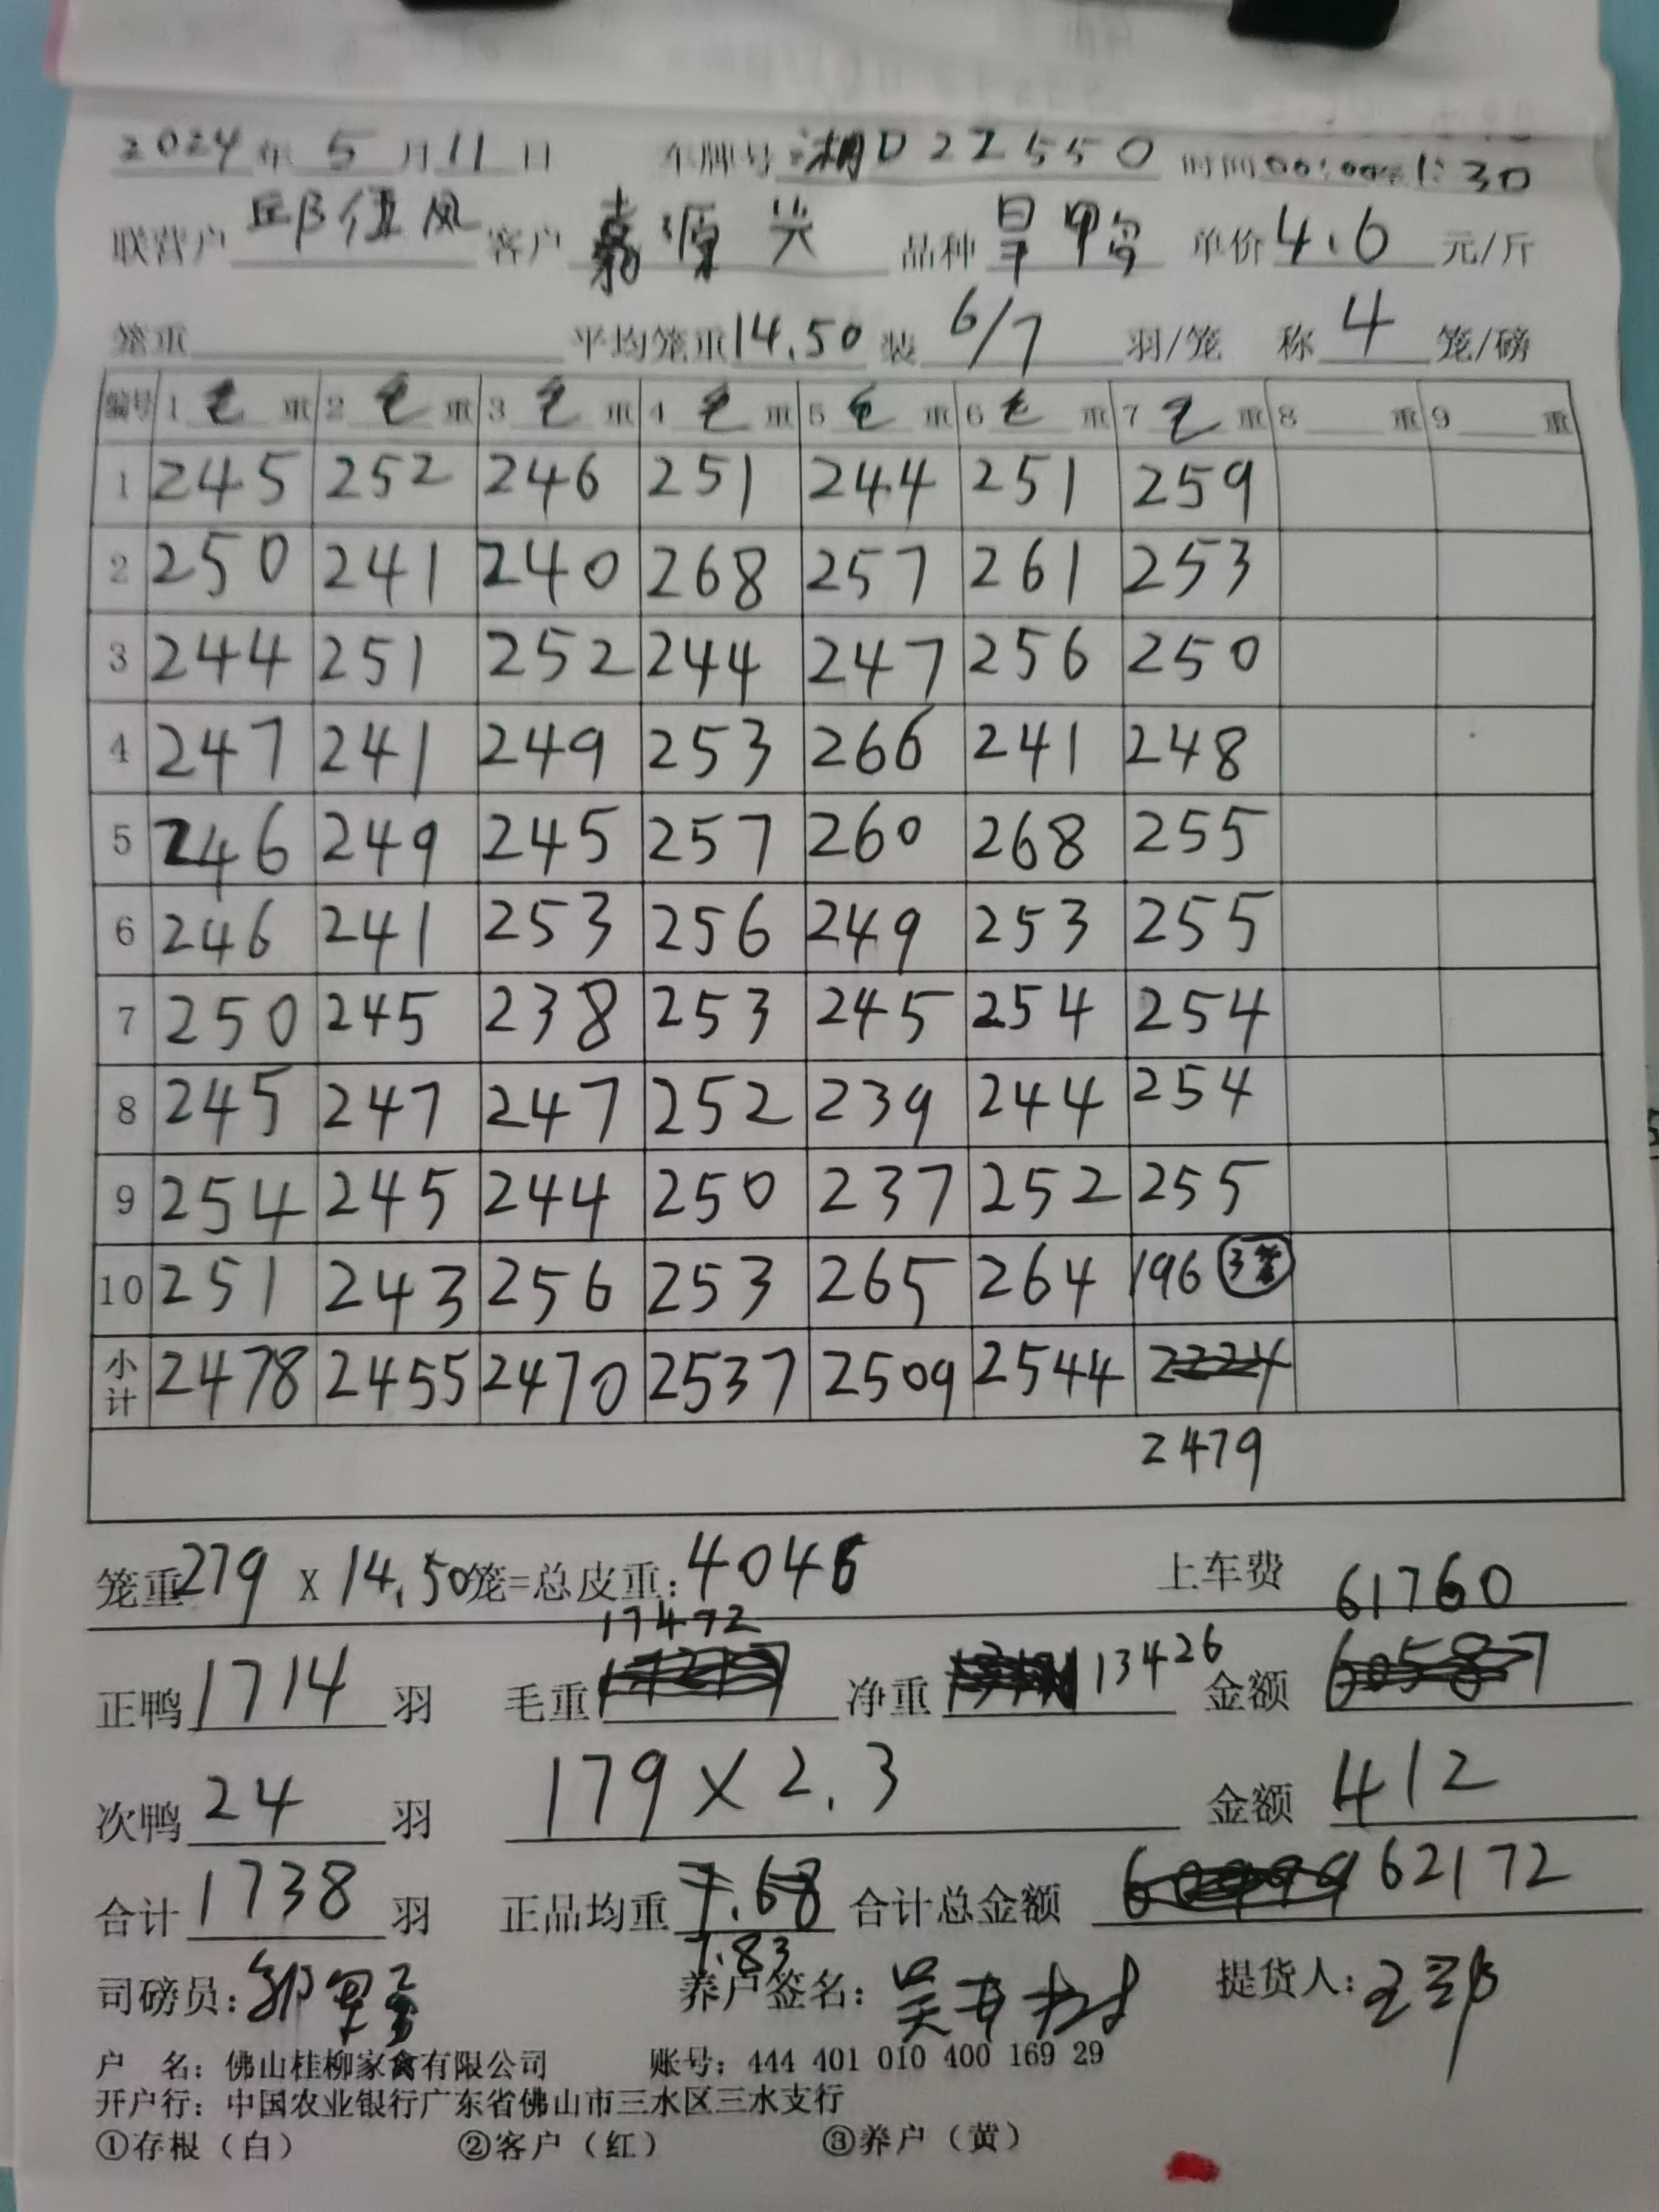 2024年5月11日 车牌号:湘D22550 时间00:00至1:30
联营户邱伍凤 客户嘉源兴 品种旱鸭 单价4.6元/斤
笼重 平均笼重14.50 装6/7羽/笼 称4笼/磅
编号 1毛重 2毛重 3毛重 4毛重 5毛重 6毛重 7毛重 8重 9重
1 245 252 246 251 244 251 259
2 250 241 240 268 257 261 253
3 244 251 252 244 247 256 250
4 247 241 249 253 266 241 248
5 246 249 245 257 260 268 255
6 246 241 253 256 249 253 255
7 250 245 238 253 245 254 254
8 245 247 247 252 239 244 254
9 254 245 244 250 237 252 255
10 251 243 256 253 265 264 196 3笼
小计 2478 2455 2470 2537 2509 2544 2224
2479
笼重279 x 14.50笼=总皮重:4046 上车费
61760
17472
正鸭1714羽 毛重 净重 13426 金额60587
次鸭24羽 179×2.3 金额412
合计1738羽 正品均重7.68 合计总金额 62172
7.83
司磅员: 养户签名:吴 提货人:
户 名:佛山桂柳家禽有限公司 账号:444 401 010 400 169 29
开户行:中国农业银行广东省佛山市三水区三水支行
①存根(白) ②客户(红) ③养户(黄)